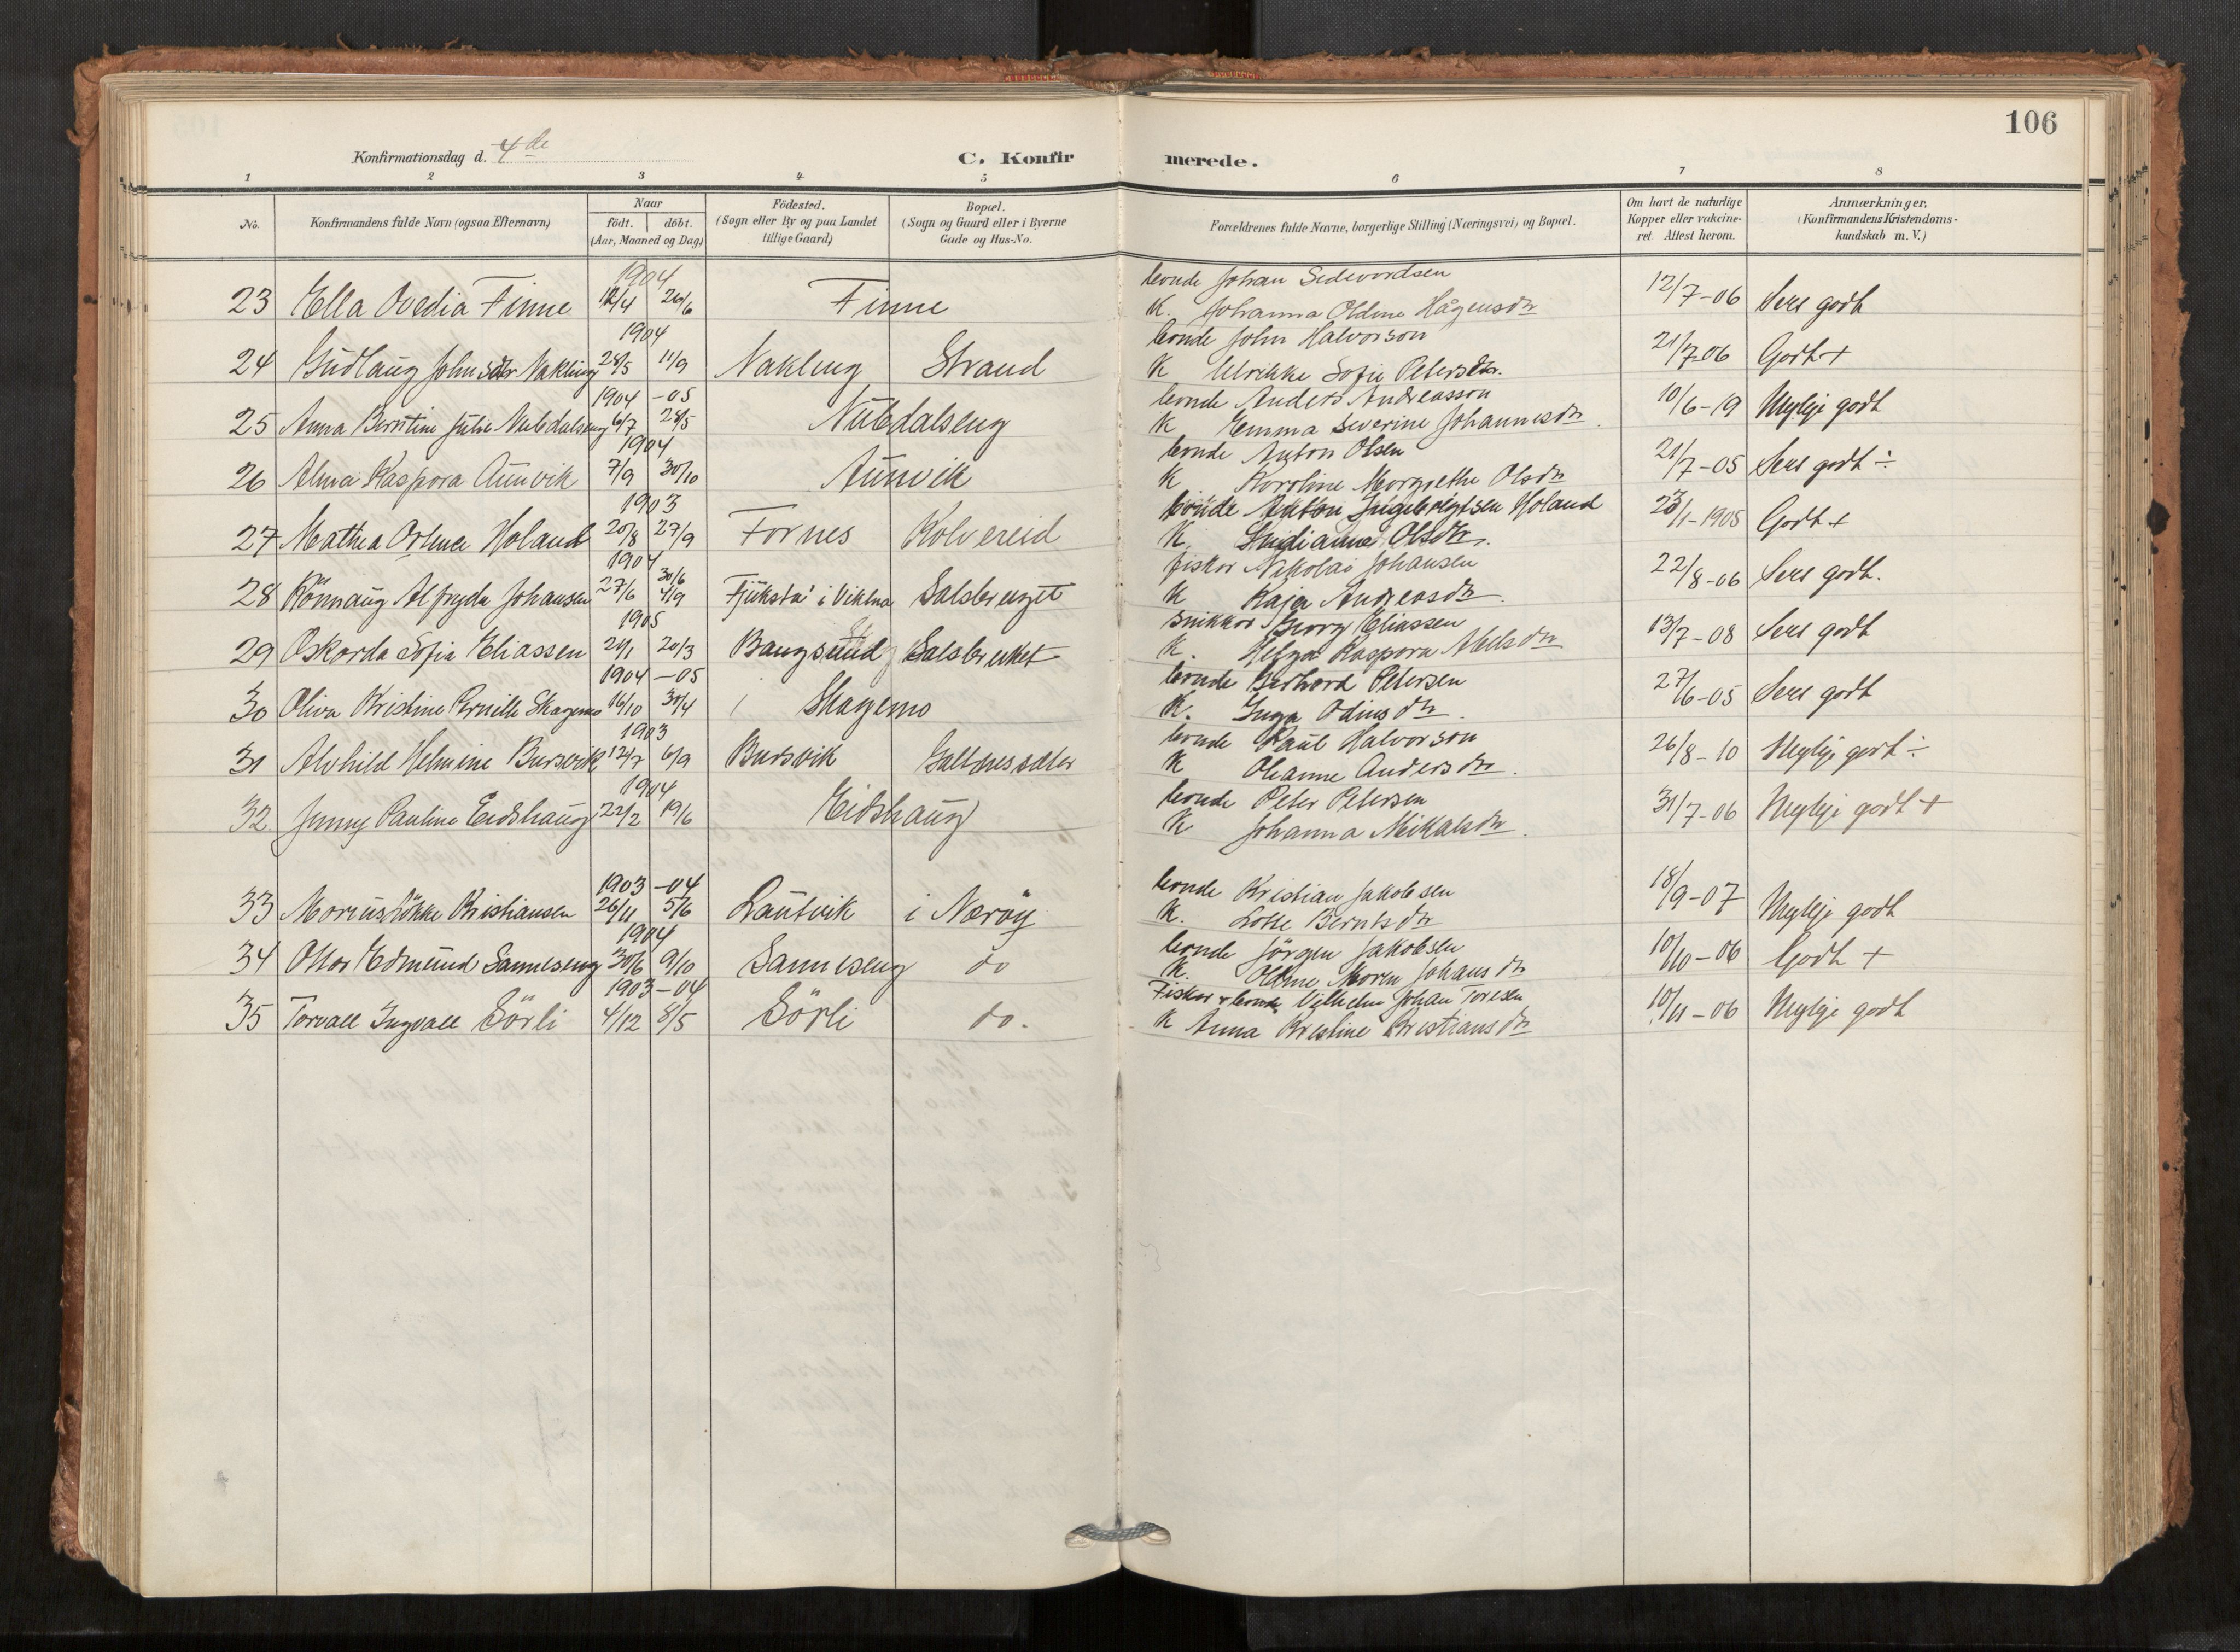 106
Konfirmationsdag d. 4de
C. Konfirmerede.
1 2 3 4 5 6 7 8
No. Konfirmandens fulde Navn (ogsaa Efternavn) Naar født. døbt. (Aar, Maaned og Dag) Födested. (Sogn eller By og paa Landet tillige Gaard) Bopæl. (Sogn og Gaard eller i Byerne Gade og Hus-No. Forældrenes fulde Navne, borgerlige Stilling (Næringsvei) og Bopæl. Om havt de naturlige Kopper eller vakcineret. Attest herom. Anmærkninger, (Konfirmandens Kristendomskundskab m. V.)
1904 bonde Johan Sedevordsen
23 Ella Ovedia Finne 12/4 26/6 Finne K. Johanna Oldine Hågensdtr 12/7-06 Sers godt
1904 bonde John Halvorson
24 Gudlaug Johnsdtr Nakling 28/5 11/9 Nakling Strand K Ulrikke Sofie Petersdtr. 21/7-06 Godt +
1904 -05 bonde Anders Andreasson
25 Anna Berntine Julie Nubdalseng 6/7 28/5 Nubdalseng K Emma Severine Johannesdtr. 10/6-19 Myljge godt
1904 bonde Anton Olsen
26 Alma Kaspora Aunvik 7/9 30/10 Aunvik K Koroline Morgrethe Olsdtr 21/7-05 Sers godt ÷
1903 bonde Anton Ingebrigtsen Holand
27 Mathea Holand 20/8 27/9 Fornes Kolvereid K. Olsdtr. 23/1-1905 Godt +
1904 30/6 fisker Nikolai Johansen
28 Rønnaug Alfryda Johansen 27/6 4/9 Fjuksta i Vikna Salsbruget K Kaja Andreasdtr 22/8-06 Sers godt.
1905 snikkor Georg Eliassen
29 Oskorda Sofia Eliassen 24/1 20/3 Bangsund Salsbruket K. Helga Kaspora Nelsdtr 13/7-08 Sers godt
1904 -05 bonde Gerhard Petersen
30 Oliva Kristine Pernille Skagemo 16/10 30/4 Skagemo K. Inga Odinsdtr. 27/6-05 Sers godt
1903 bonde Paul Halvorson
31 Alvhild Helmine Bursvik 12/7 6/9 Bursvik K Olianne Andersdtr. 26/8-10 Myljge godt ÷
1904 bonde Peter Petersen
32 Jenny Pauline Eidshaug 22/2 19/6 Eidshaug K Johanna Mikalsdtr. 31/7-06 Myljge godt +
1903 -04 bonde Kristian Jakobsen
33 Morius Løkke Kristiansen 26/11 5/6 Lautvik i Nærøy K. Lotte Berntsdtr 18/9-07 Myljge godt
1904 bonde Jørgen Jakobsen
34 Ottar Edmund Sanneseng 30/6 9/10 Sanneseng do K. Oldine Moren Johansdtr 10/10-06 Godt +
1903-04 Fisker & bonde Vilhelm Johan Toresen
35 Torvall Ingvall Sörli 4/12 8/5 Sörli do. K Anna Kristine Kristiansdtr 10/11-06 Myljge godt